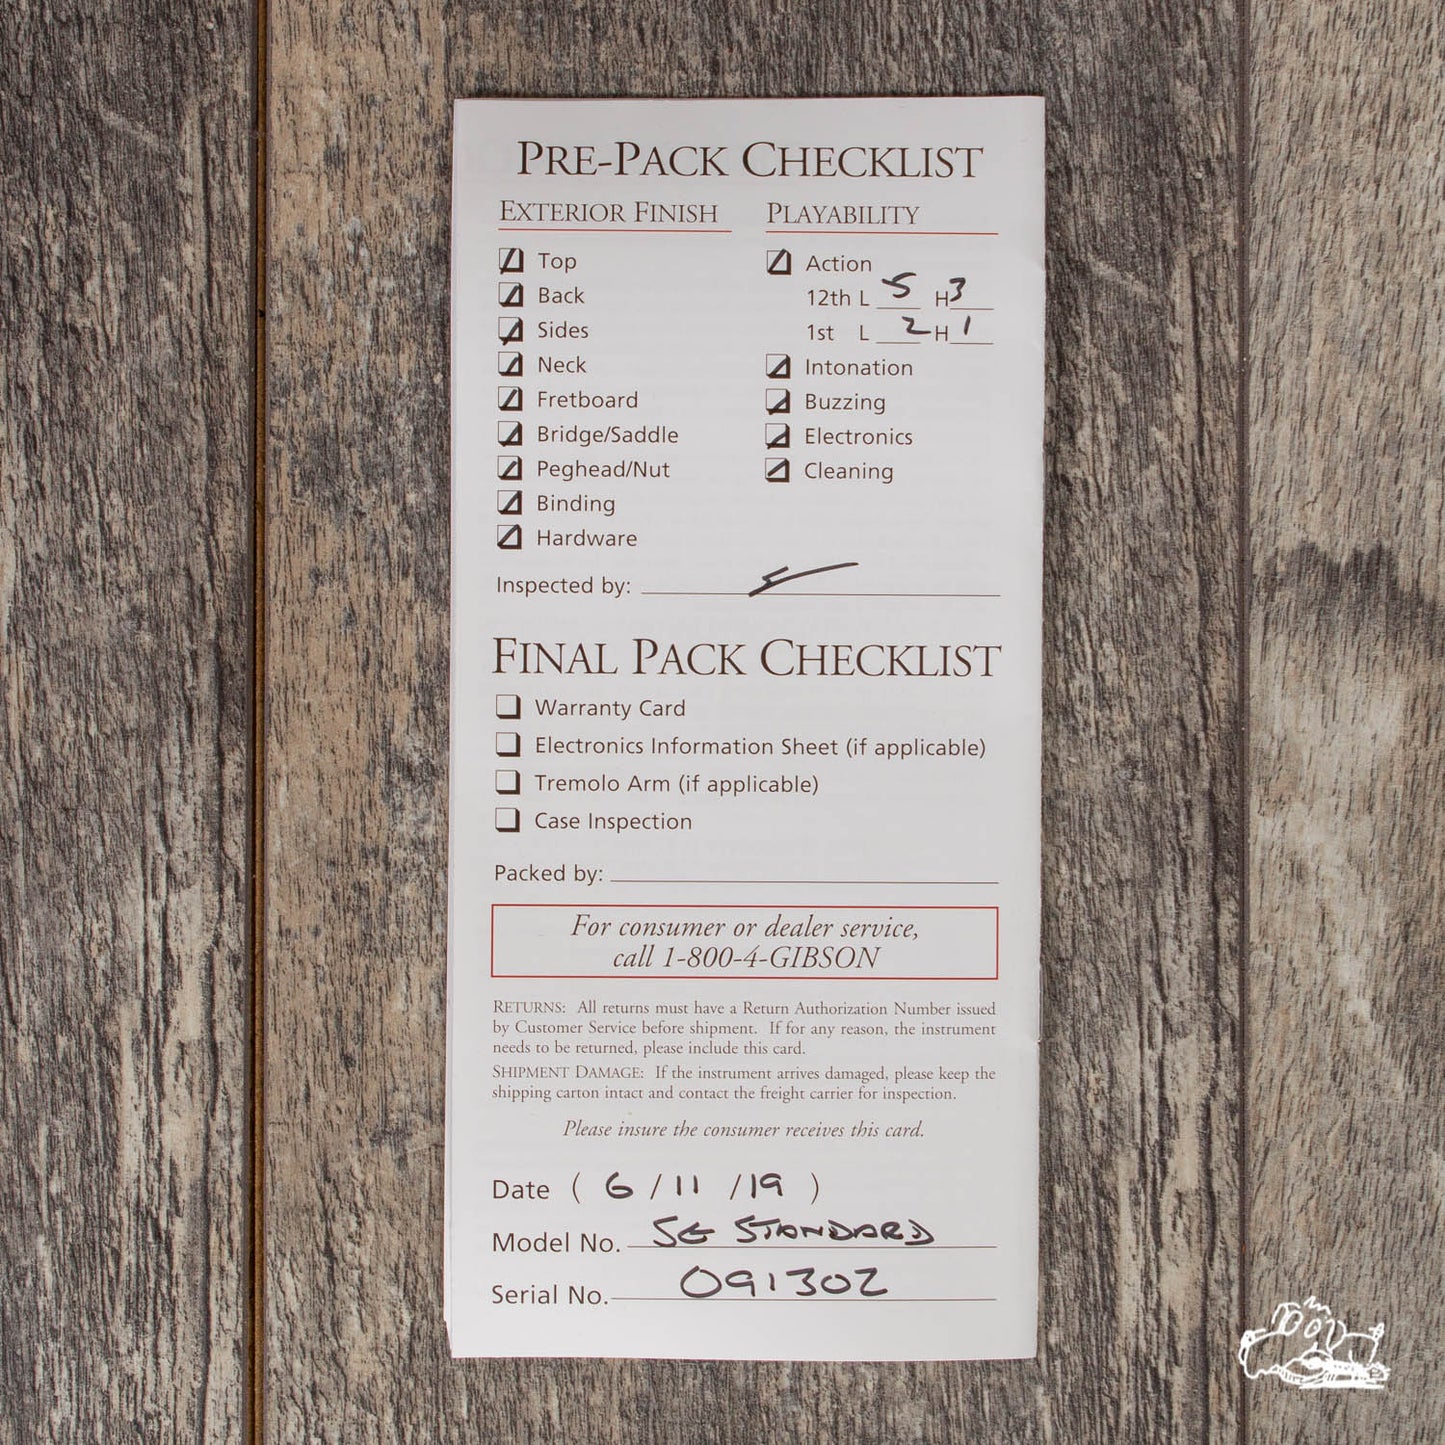 PRE-PACK CHECKLIST
EXTERIOR FINISH
Top
Back
Sides
Neck
Fretboard
Bridge/Saddle
Peghead/Nut
Binding
Hardware
PLAYABILITY
Action
12th L 5 H 3
1st L 2 H 1
Intonation
Buzzing
Electronics
Cleaning
Inspected by:
FINAL PACK CHECKLIST
Warranty Card
Electronics Information Sheet (if applicable)
Tremolo Arm (if applicable)
Case Inspection
Packed by:
For consumer or dealer service,
call 1-800-4-GIBSON
RETURNS: All returns must have a Return Authorization Number issued
by Customer Service before shipment. If for any reason, the instrument
needs to be returned, please include this card.
SHIPMENT DAMAGE: If the instrument arrives damaged, please keep the
shipping carton intact and contact the freight carrier for inspection.
Please insure the consumer receives this card.
Date ( 6 / 11 / 19 )
Model No. SG STANDARD
Serial No. 091302